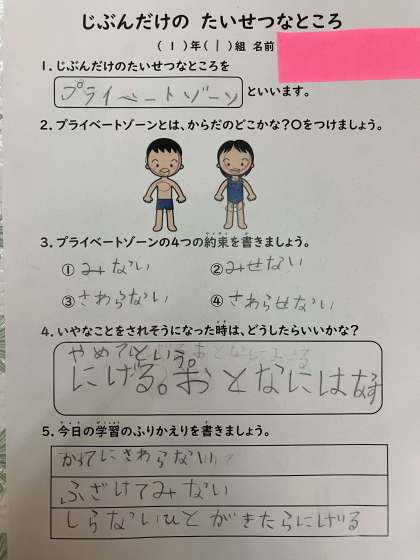 じぶんだけの たいせつなところ
(1)年(1)組 名前
1.じぶんだけのたいせつなところを
プライベートゾーン といいます。
2.プライベートゾーンとは、からだのどこかな?○をつけましょう。
3.プライベートゾーンの4つの約束を書きましょう。
①みない ②みせない
③さわらない ④さわらせない
4.いやなことをされそうになった時は、どうしたらいいかな?
やめてという。
にげる。おとなにはなす
5.今日の学習のふりかえりを書きましょう。
かってにさわらない
ふざけてみない
しらないひとがきたらにげる